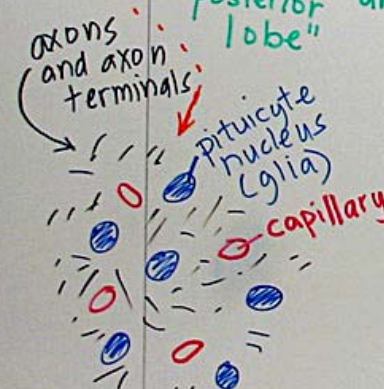 posterior
lobe"
axons
and axon
terminals
pituicyte
nucleus
(glia)
capillary